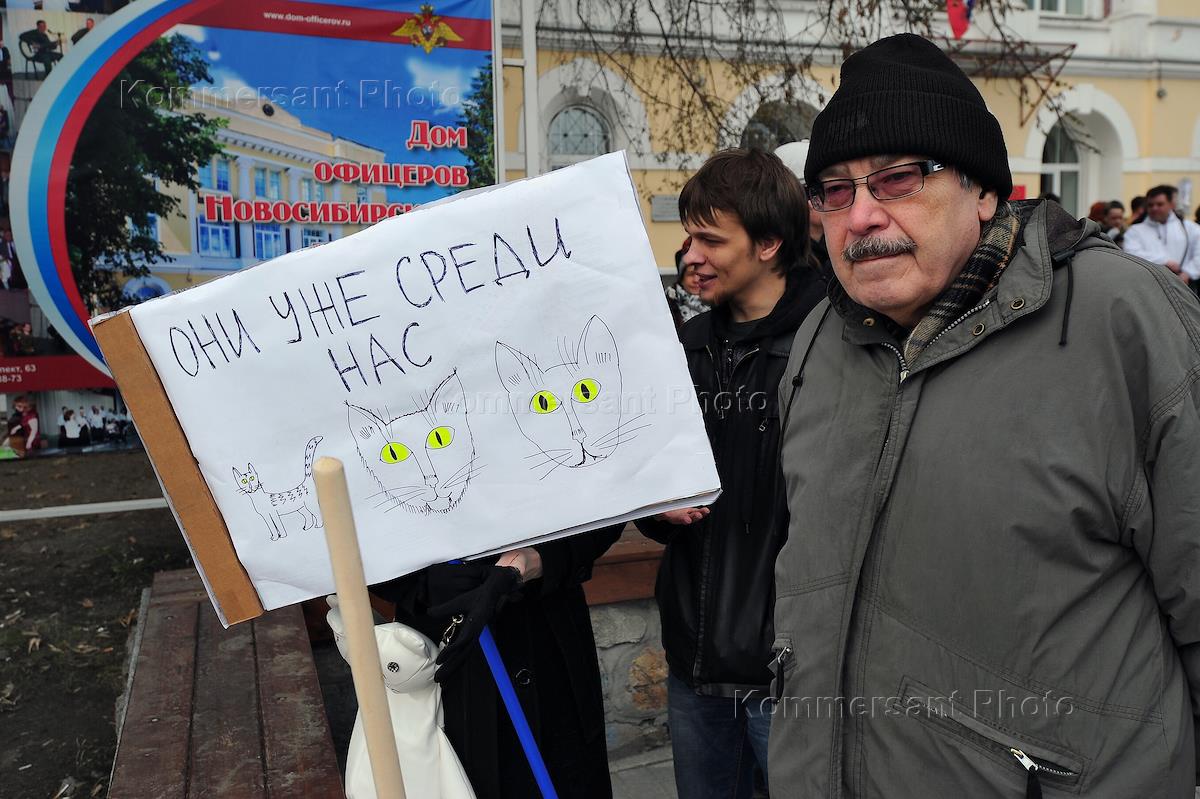 www.dom-officerov.ru
Дом
офицеров
Новосибирск
ОНИ УЖЕ СРЕДИ
НАС
пект, 63
38-73
Kommersant Photo
Kommersant Photo
Kommersant Photo
Kommersant Photo